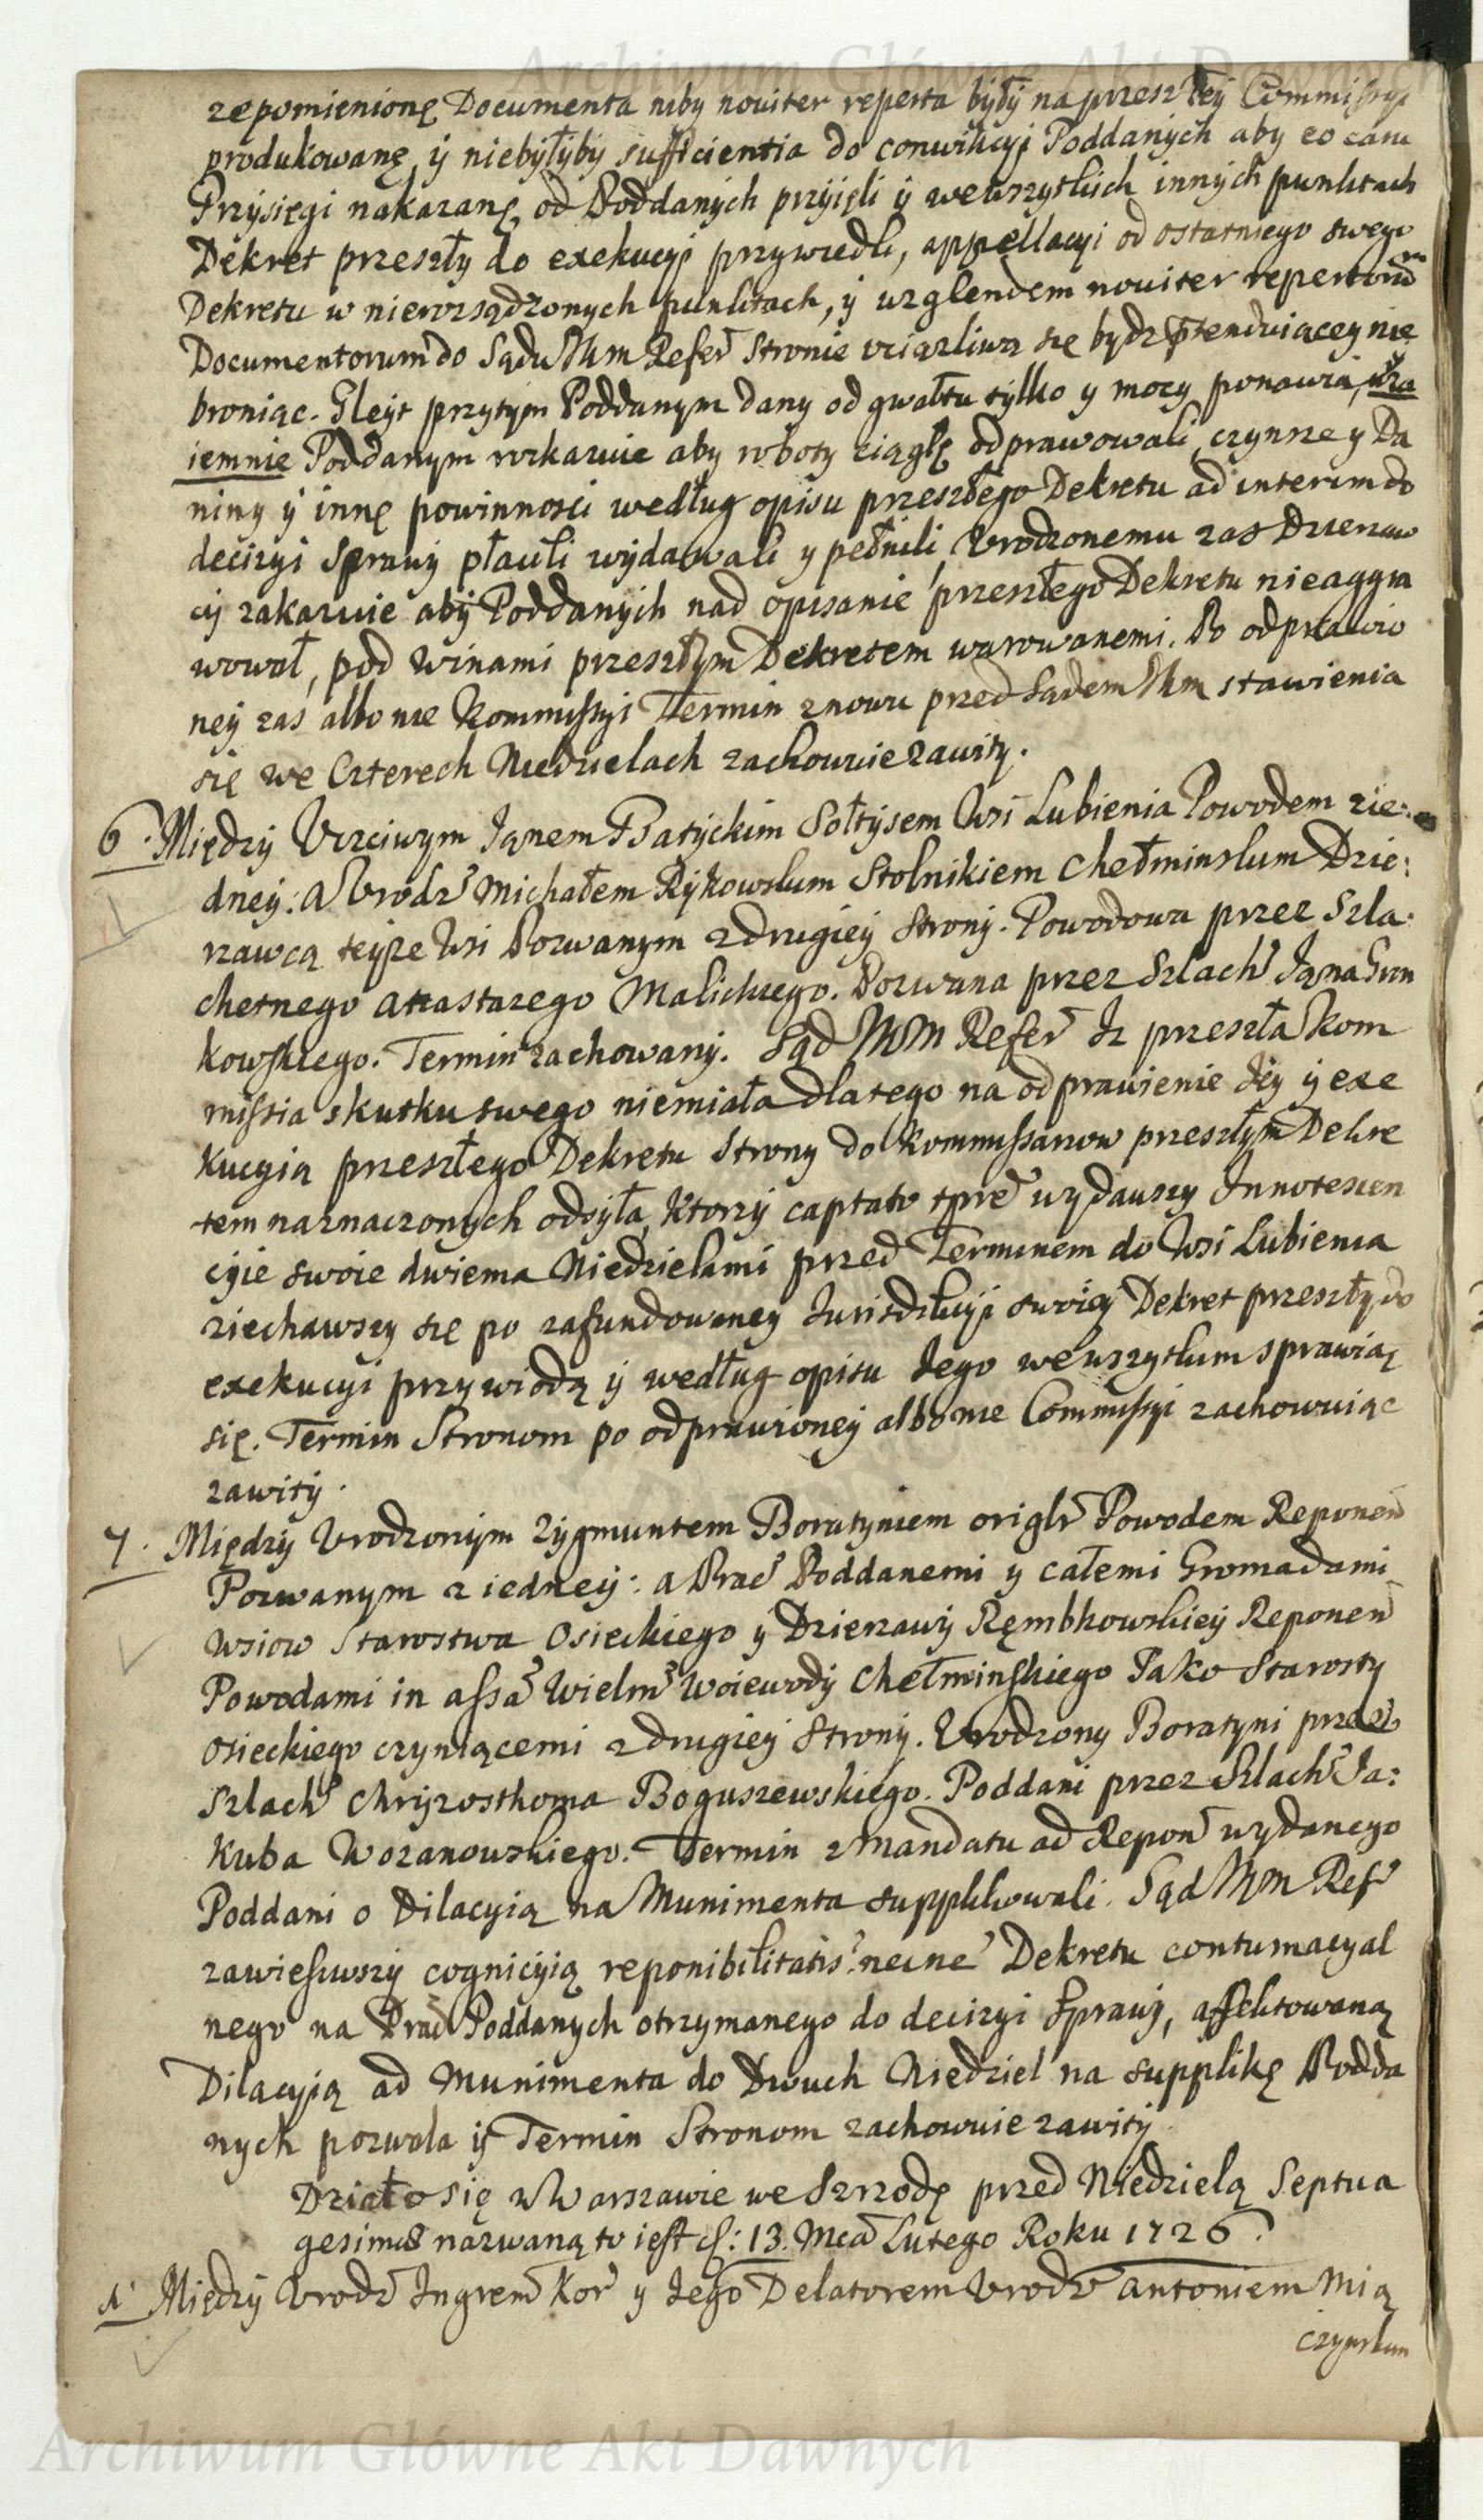 Archiwum Główne Akt Dawnych
zepomienionę Documenta niby noviter reperta były na przeszłey Commissyi
produkowanę, y niebyłyby sufficientia do conwikcyi Poddanych aby eo casu
Przysięgi nakazanę od Poddanych przyięli y wewszytkich innych punktach
Dekret przeszły do exekucyi przywiedli, appellacyi od ostatniego swego
Dekretu w nierozsądzonych punktach, y wzglendem noviter repertorum
Documentorum do Sądu Nm Refer̃ Stronie uciążliwa się bydź ptenduiącey nie
broniąc. Gleyt przytym Poddanym dany od gwałtu tylko y mocy ponawia, wza
iemnie Poddanym rozkazuie aby roboty ciągłę odprawowali, czynsze y Da
niny y innę powinnosci według opisu przeszłego Dekretu ad interim do
decizyi Sprawy płacili wydawali y pełnili, Urodzonemu zas Dzierzaw
cy zakazuie aby Poddanych nad opisanie przeszłego Dekretu nieaggra
wował, pod winami przeszłym Dekretem warowanemi. Po odprawio
ney zas albo nie Kommissyi Termin znowu przed Sądem Nm stawienia
się we Czterech Niedzielach zachowuie zawity.
6. Między Uczciwym Janem Batyckim Sołtysem Wsi Lubienia Powodem zie:
dney: a Urodz̃ Michałem Rykowskim Stolnikiem Chełminskim Dzie:
rzawcą teyze Wsi Pozwanym zdrugiey Strony. Powodowa przez Szla:
chetnego Atastazego Malickiego. Pozwana przez Szlach̃ Jana Gun
kowskiego. Termin zachowany. Sąd NM Refer̃ Iz przeszła Kom
missia skutku swego niemiała dlatego na odprawienie Jey y exe
kucyią przeszłego Dekretu Strony do Kommissarzow przeszłym Dekre
tem naznaczonych odsyła, Ktorzy captato tpre wydawszy Innotescen
cyie swoie dwiema Niedzielami przed Terminem do Wsi Lubienia
ziechawszy się po zafundowaney Jurisdikcyi swoiey Dekret przeszły do
exekucyi przywiodą y według opisu Jego wewszytkim sprawią
się. Termin Stronom po odprawioney albo nie Commissyi zachowuiąc
zawity.
7. Między Urodzonym Zygmuntem Boratyniem origlr̃ Powodem Reponen̄
Pozwanym z iedney: a Prac̃ Poddanemi y całemi Gromadami
Wsiow Starostwa Osieckiego y Dzierzawy Rębkowskiey Reponen̄
Powodami in assã Wielm̃ Woiewody Chełminskiego Jako Starosty
Osieckiego czyniącemi zdrugiey Strony. Urodzony Boratyni przez
Szlach̃ Chryzosthoma Boguszewskiego. Poddani przez Szlach̃ Ja:
kuba Wozanowskiego. Termin z Mandatu ad Repon̄ wydanego
Poddani o Dilacyią na Munimenta supplikowali. Sąd NM Ref̃
zawiesiwszy cognicyią reponibilitatis necne Dekretu contumacyal
nego na Prac̃ Poddanych otrzymanego do decizyi Sprawy, affektowaną
Dilacyią ad Munimenta do Dwuch Niedziel na supplikę Podda
nych pozwala y Termin Stronom zachowuie zawity.
Działo się w Warszawie we Szrzodę przed Niedzielą Septua
gesima nazwaną to iest d: 13. Mca Lutego Roku 1726.
1. Między Urodz̃ Ingren̄ Kor̃ y Jego Delatorem Urodz̃ Antoniem Mią
czynskim
Archiwum Główne Akt Dawnych